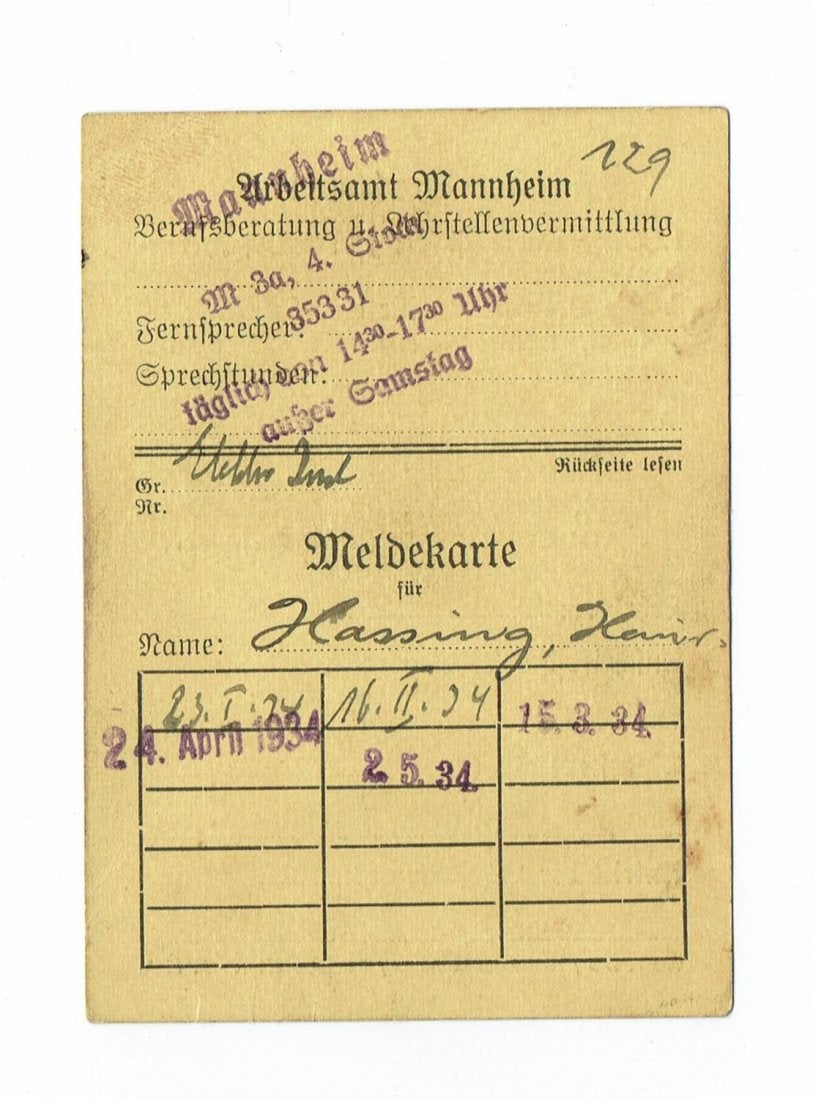 129
Arbeitsamt Mannheim
Berufsberatung u. Lehrstellenvermittlung
Mannheim
M 3a, 4. Stock
Fernsprecher:
35331
Sprechstunden:
täglich von 14³⁰-17³⁰ Uhr
außer Samstag
Rückseite lesen
Gr. Elektro
Nr.
Meldekarte
für
Name: Hassing, Heinr.
23. I. 34 16. II. 34 15. 3. 34.
24. April 1934 2. 5. 34.